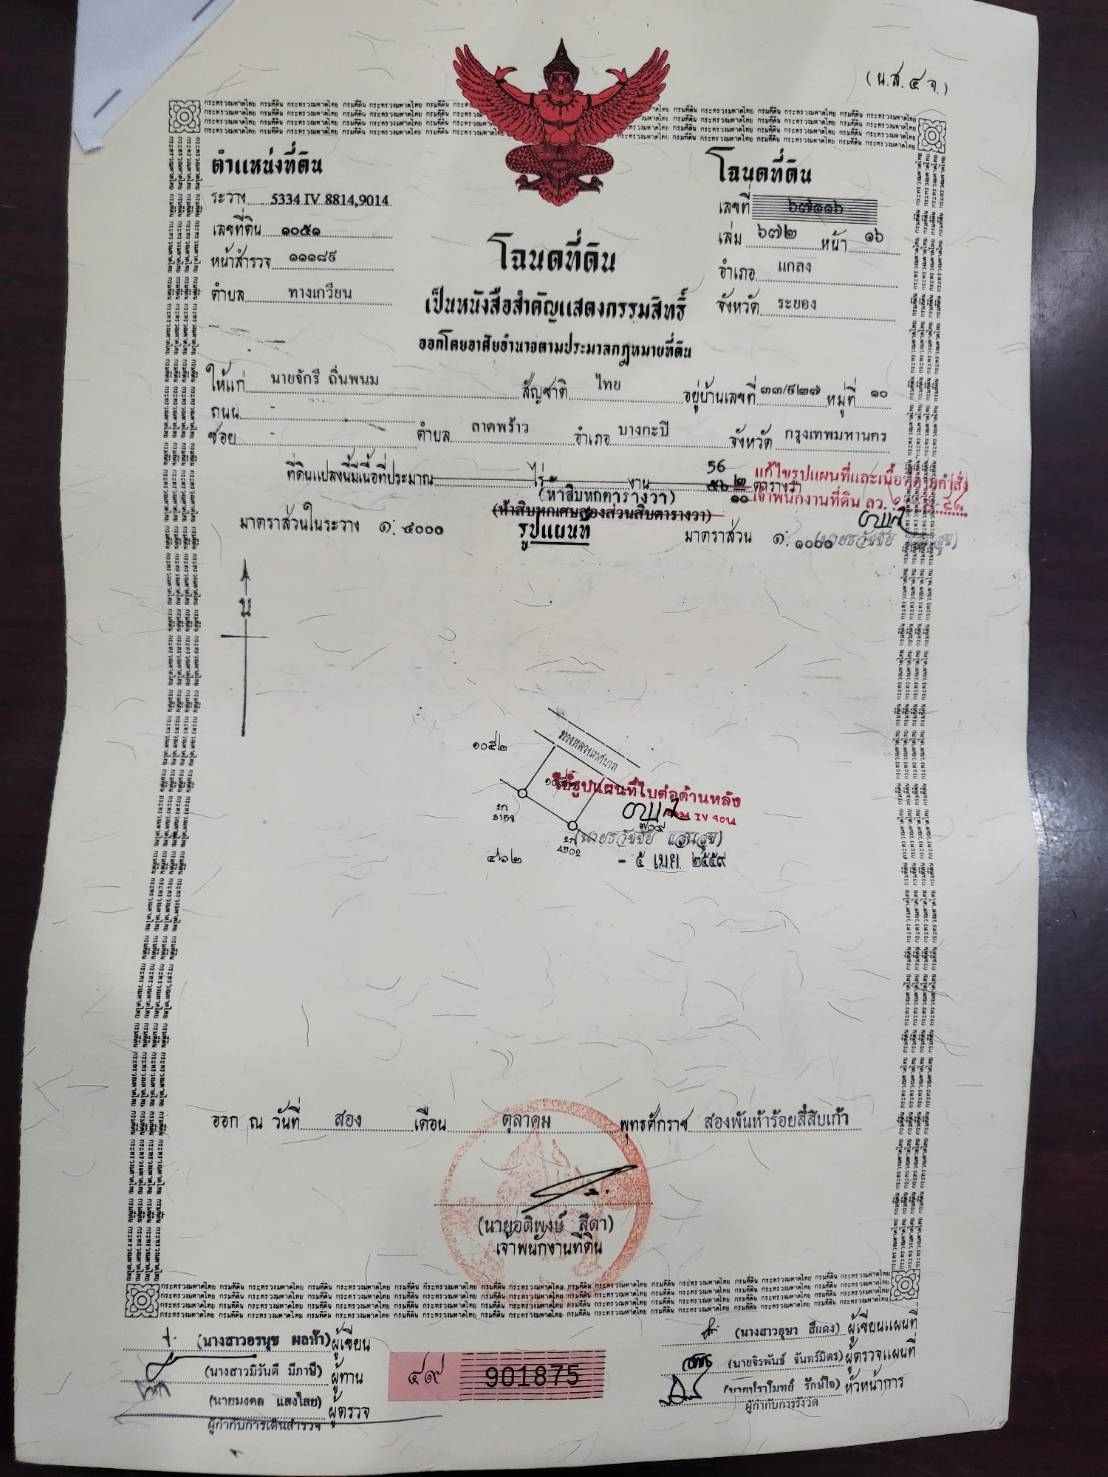 (น.ส.๔ จ.)
ตำแหน่งที่ดิน
ระวาง 5334 IV 8814,9014
เลขที่ดิน ๑๐๕๑
หน้าสำรวจ ๑๑๑๘๙
ตำบล ทางเกวียน
โฉนดที่ดิน
เลขที่ ๖๗๑๑๖
เล่ม ๖๗๒ หน้า ๑๖
อำเภอ แกลง
จังหวัด ระยอง
โฉนดที่ดิน
เป็นหนังสือสำคัญแสดงกรรมสิทธิ์
ออกโดยอาศัยอำนาจตามประมวลกฎหมายที่ดิน
ให้แก่ นายจักรี ถิ่นพนม สัญชาติ ไทย อยู่บ้านเลขที่ ๓๓/๕๒๗ หมู่ที่ ๑๐
ถนน -
ซอย - ตำบล ลาดพร้าว อำเภอ บางกะปิ จังหวัด กรุงเทพมหานคร
ที่ดินแปลงนี้มีเนื้อที่ประมาณ ไร่ งาน 56 ตารางวา
แก้ไขรูปแผนที่และเนื้อที่
(ห้าสิบหกตารางวา)
เจ้าพนักงานที่ดิน
(ห้าสิบหกเศษสองส่วนสิบตารางวา)
มาตราส่วนในระวาง ๑:๔๐๐๐ รูปแผนที่ มาตราส่วน ๑:๑๐๐๐
น
๑๐๕๒
ทางหลวงเทศบาล
ใช้รูปแผนที่ใบต่อด้านหลัง
๔๖๒
- ๕ เมย ๒๕๕๙
ออก ณ วันที่ สอง เดือน ตุลาคม พุทธศักราช สองพันห้าร้อยสี่สิบเก้า
(นายอดิพงษ์ สีดา)
เจ้าพนักงานที่ดิน
(นางสาวอรนุช ผลท้า) ผู้เขียน
(นางสาวมิรันตี มีภาษี) ผู้ทาน
(นายมงคล แสงไสย) ผู้ตรวจ
ผู้กำกับการเดินสำรวจ
๔๙ 901875
(นางสาวอุษา สีแดง) ผู้เขียนแผนที่
(นายจิรพันธ์ จันทร์มิตร) ผู้ตรวจแผนที่
(นายปราโมทย์ รักษ์ใจ) หัวหน้าการ
ผู้กำกับการรังวัด